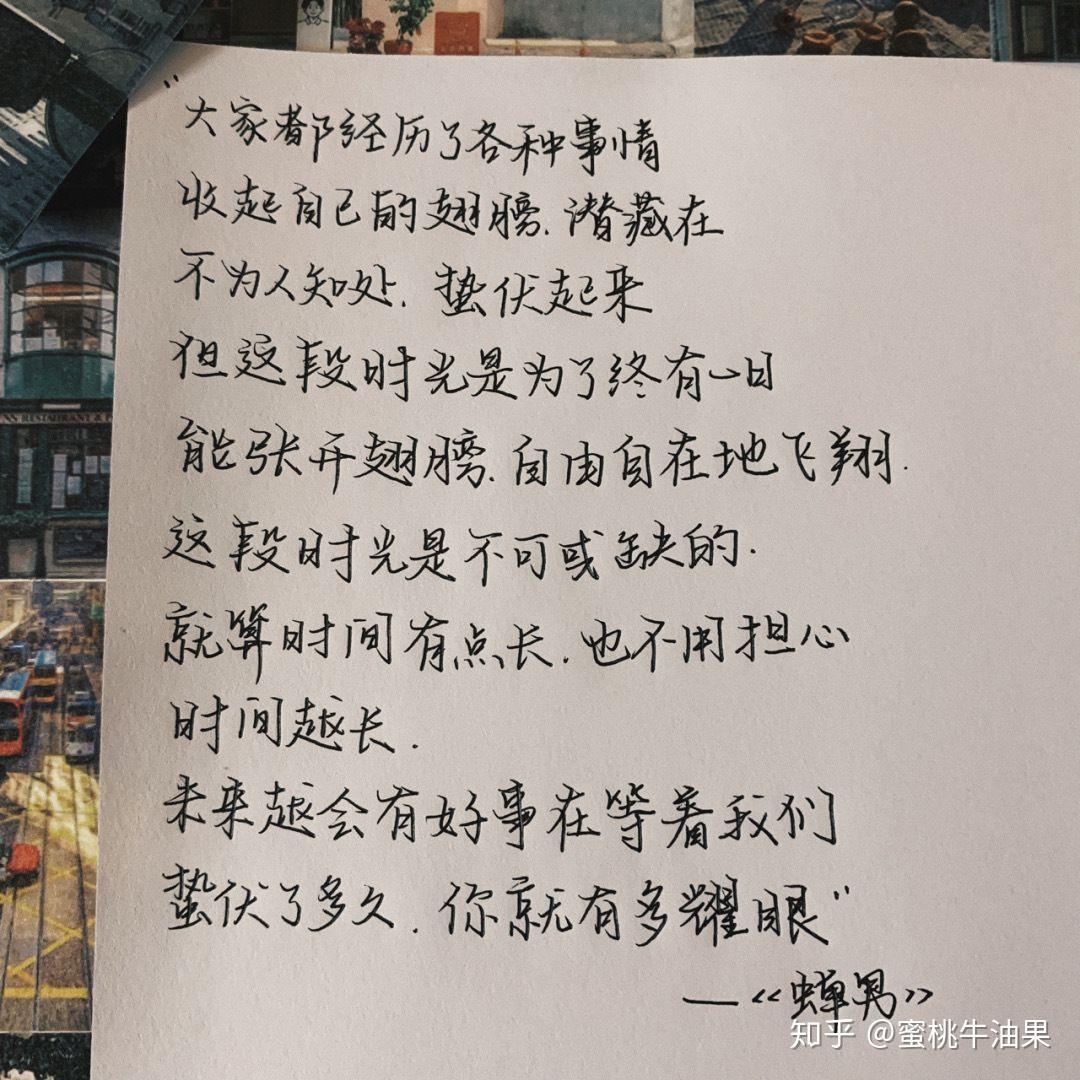 "大家都经历了各种事情
收起自己的翅膀.潜藏在
不为人知处.蛰伏起来
但这段时光是为了终有一日
能张开翅膀.自由自在地飞翔.
这段时光是不可或缺的.
就算时间有点长.也不用担心
时间越长.
未来越会有好事在等着我们
蛰伏了多久.你就有多耀眼"
—《蝉男》
知乎 @蜜桃牛油果